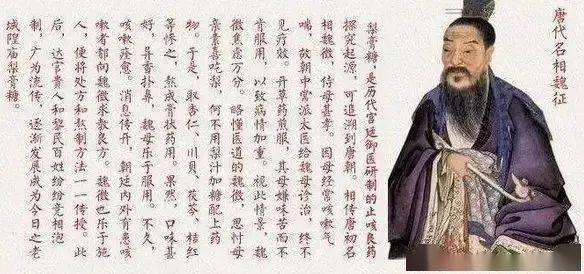 唐代名相魏征
梨膏糖，是历代宫廷御医研制的止咳良药
探究起源，可追溯到唐朝。相传唐初名
相魏徵，侍母甚孝。因母经常咳嗽气
喘，故朝中常派太医给魏母诊治，终不
见疗效。开草药煎服，其母嫌味苦而不
肯服用，以致病情加重。视此情景，魏
徵焦虑万分。略懂医道的魏徵，思忖母
亲素喜吃梨，何不用梨汁加糖配上药
物。于是，取杏仁、川贝、茯苓、桔红
等掺之，熬成膏状药用。果然，口味甚
好，异香扑鼻，魏母乐于服用，不久，
咳嗽痊愈。消息传开，朝廷内外有患咳
嗽者都向魏徵求教良方。魏徵也乐于施
人，便将处方和熬制方法一一传授。此
后，达官贵人和黎民百姓纷纷竞相泡
制，广为流传，逐渐发展成为今日之老
城隍庙梨膏糖。